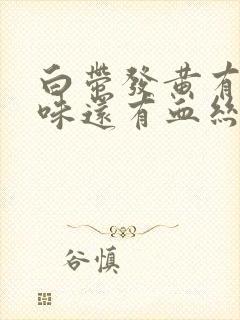 白帶發黃有
味還有血絲
谷慎